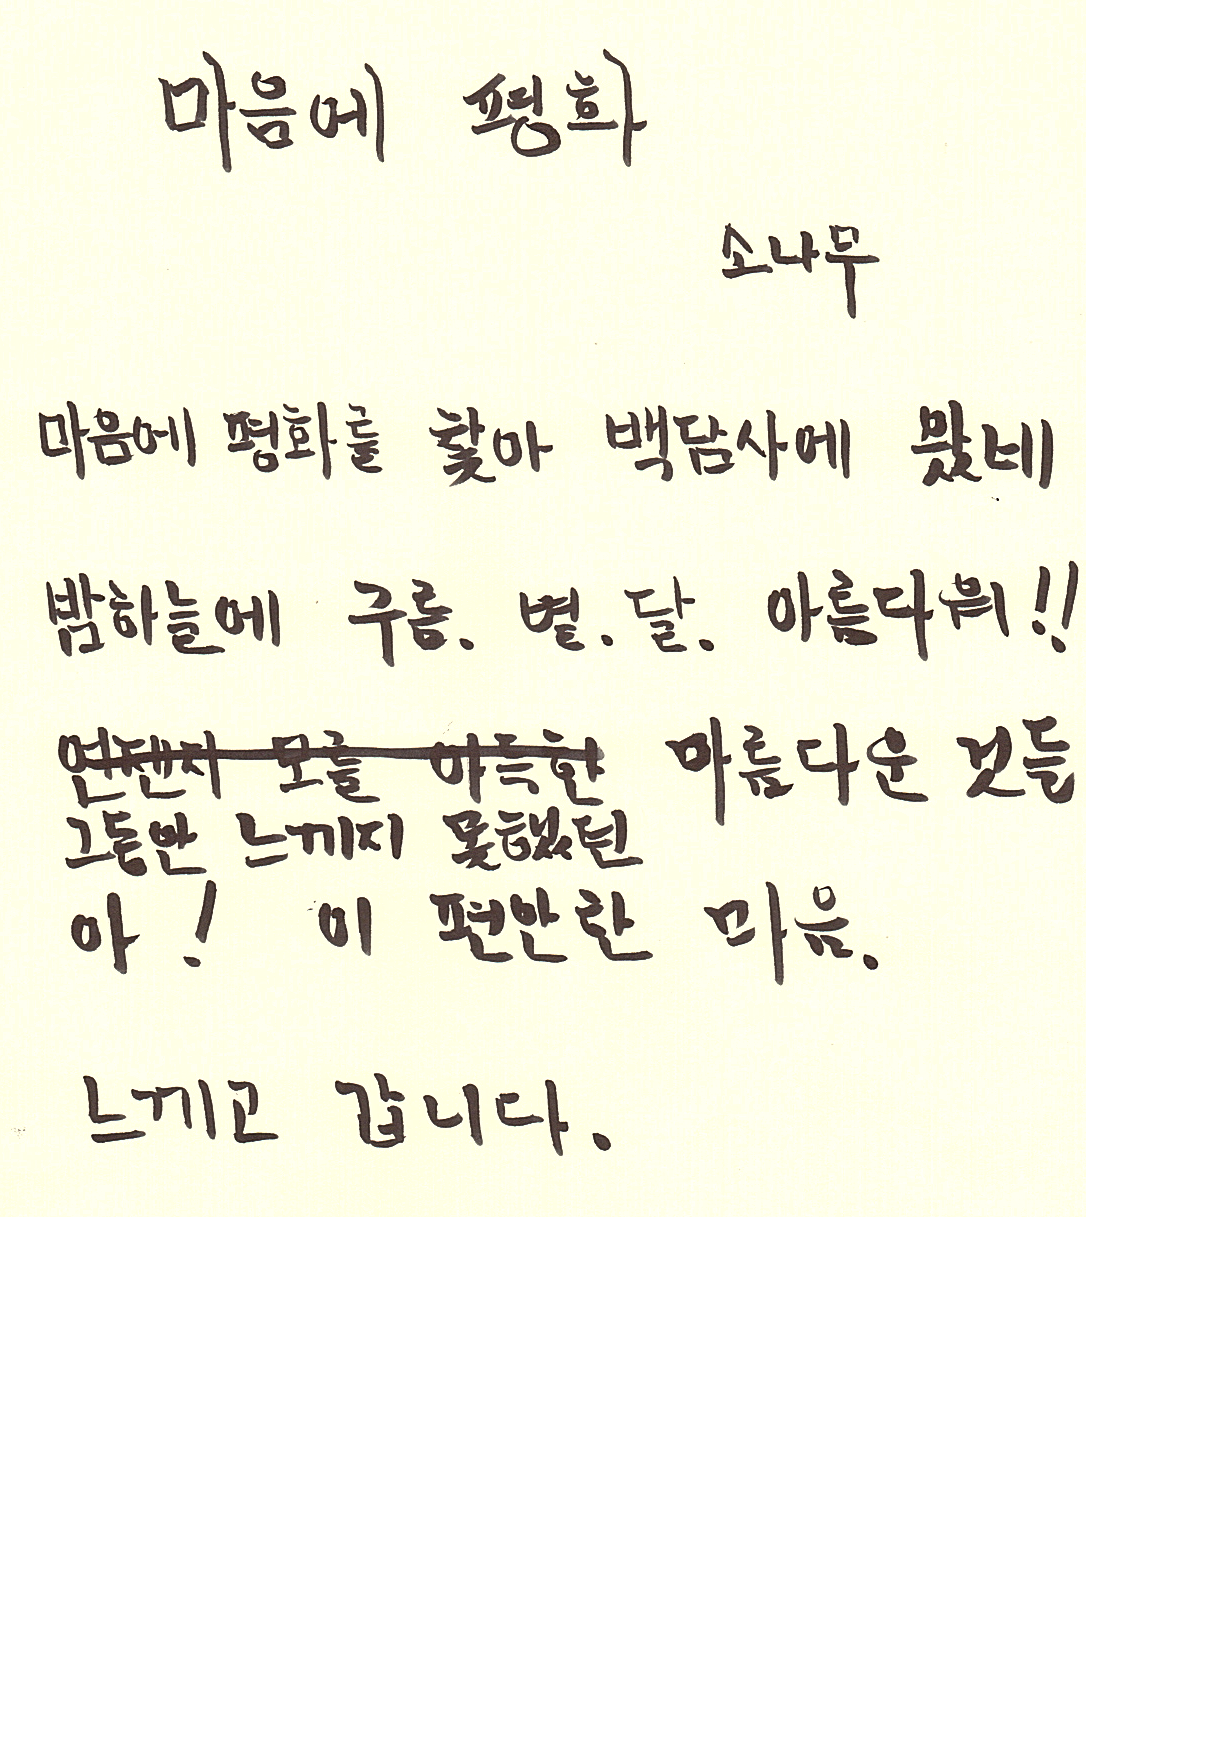 마음에 평화
소나무
마음에 평화를 찾아 백담사에 왔네
밤하늘에 구름. 별. 달. 아름다워!!
언젠지 모를 아득한 아름다운 것들
그동안 느끼지 못했던
아! 이 편안한 마음.
느끼고 갑니다.